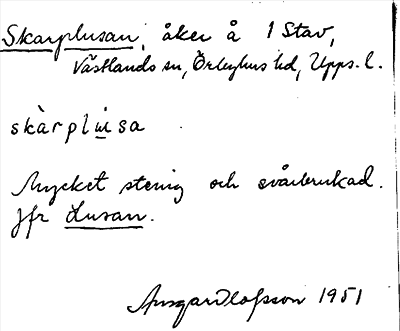 Skarplusan, åker å 1 Stav,
Västlands sn, Örbyhus hd, Upps. l.
skàrplusa
Mycket stenig och svårbrukad.
Jfr Lusan.
Ansgar Olofsson 1951